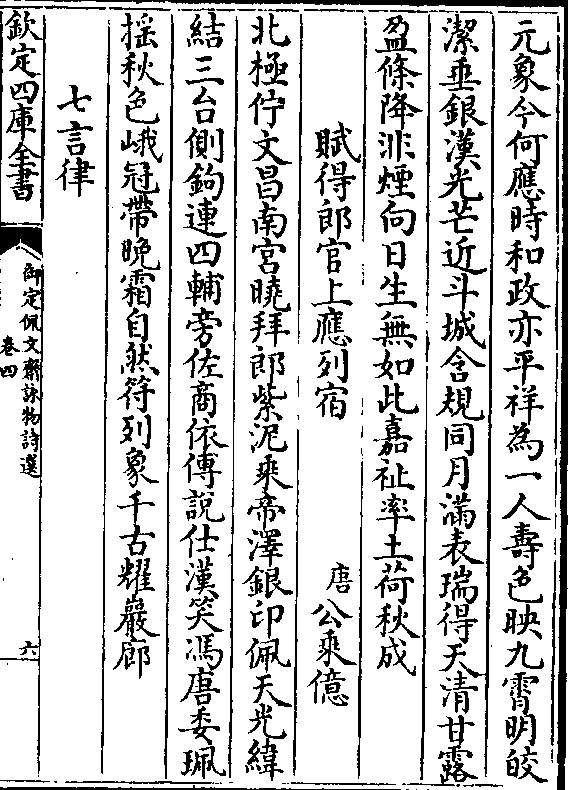 元象今何應時和政亦平祥為一人壽色映九霄明皎
潔垂銀漢光芒近斗城含規同月滿表瑞得天清甘露
盈條降非煙向日生無如此嘉祉率土荷秋成
賦得郎官上應列宿 唐 公乘億
北極佇文昌南宮曉拜郎紫泥乘帝澤銀印佩天光緯
結三台側鉤連四輔旁佐商依傅說仕漢笑馮唐委珮
搖秋色峨冠帶晚霜自然符列象千古耀巖廊
七言律
欽定四庫全書
御定佩文齋詠物詩選
卷四
六